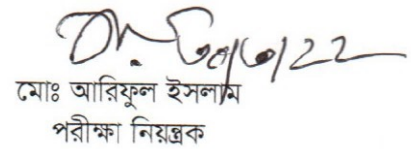 মোঃ আরিফুল ইসলাম
পরীক্ষা নিয়ন্ত্রক